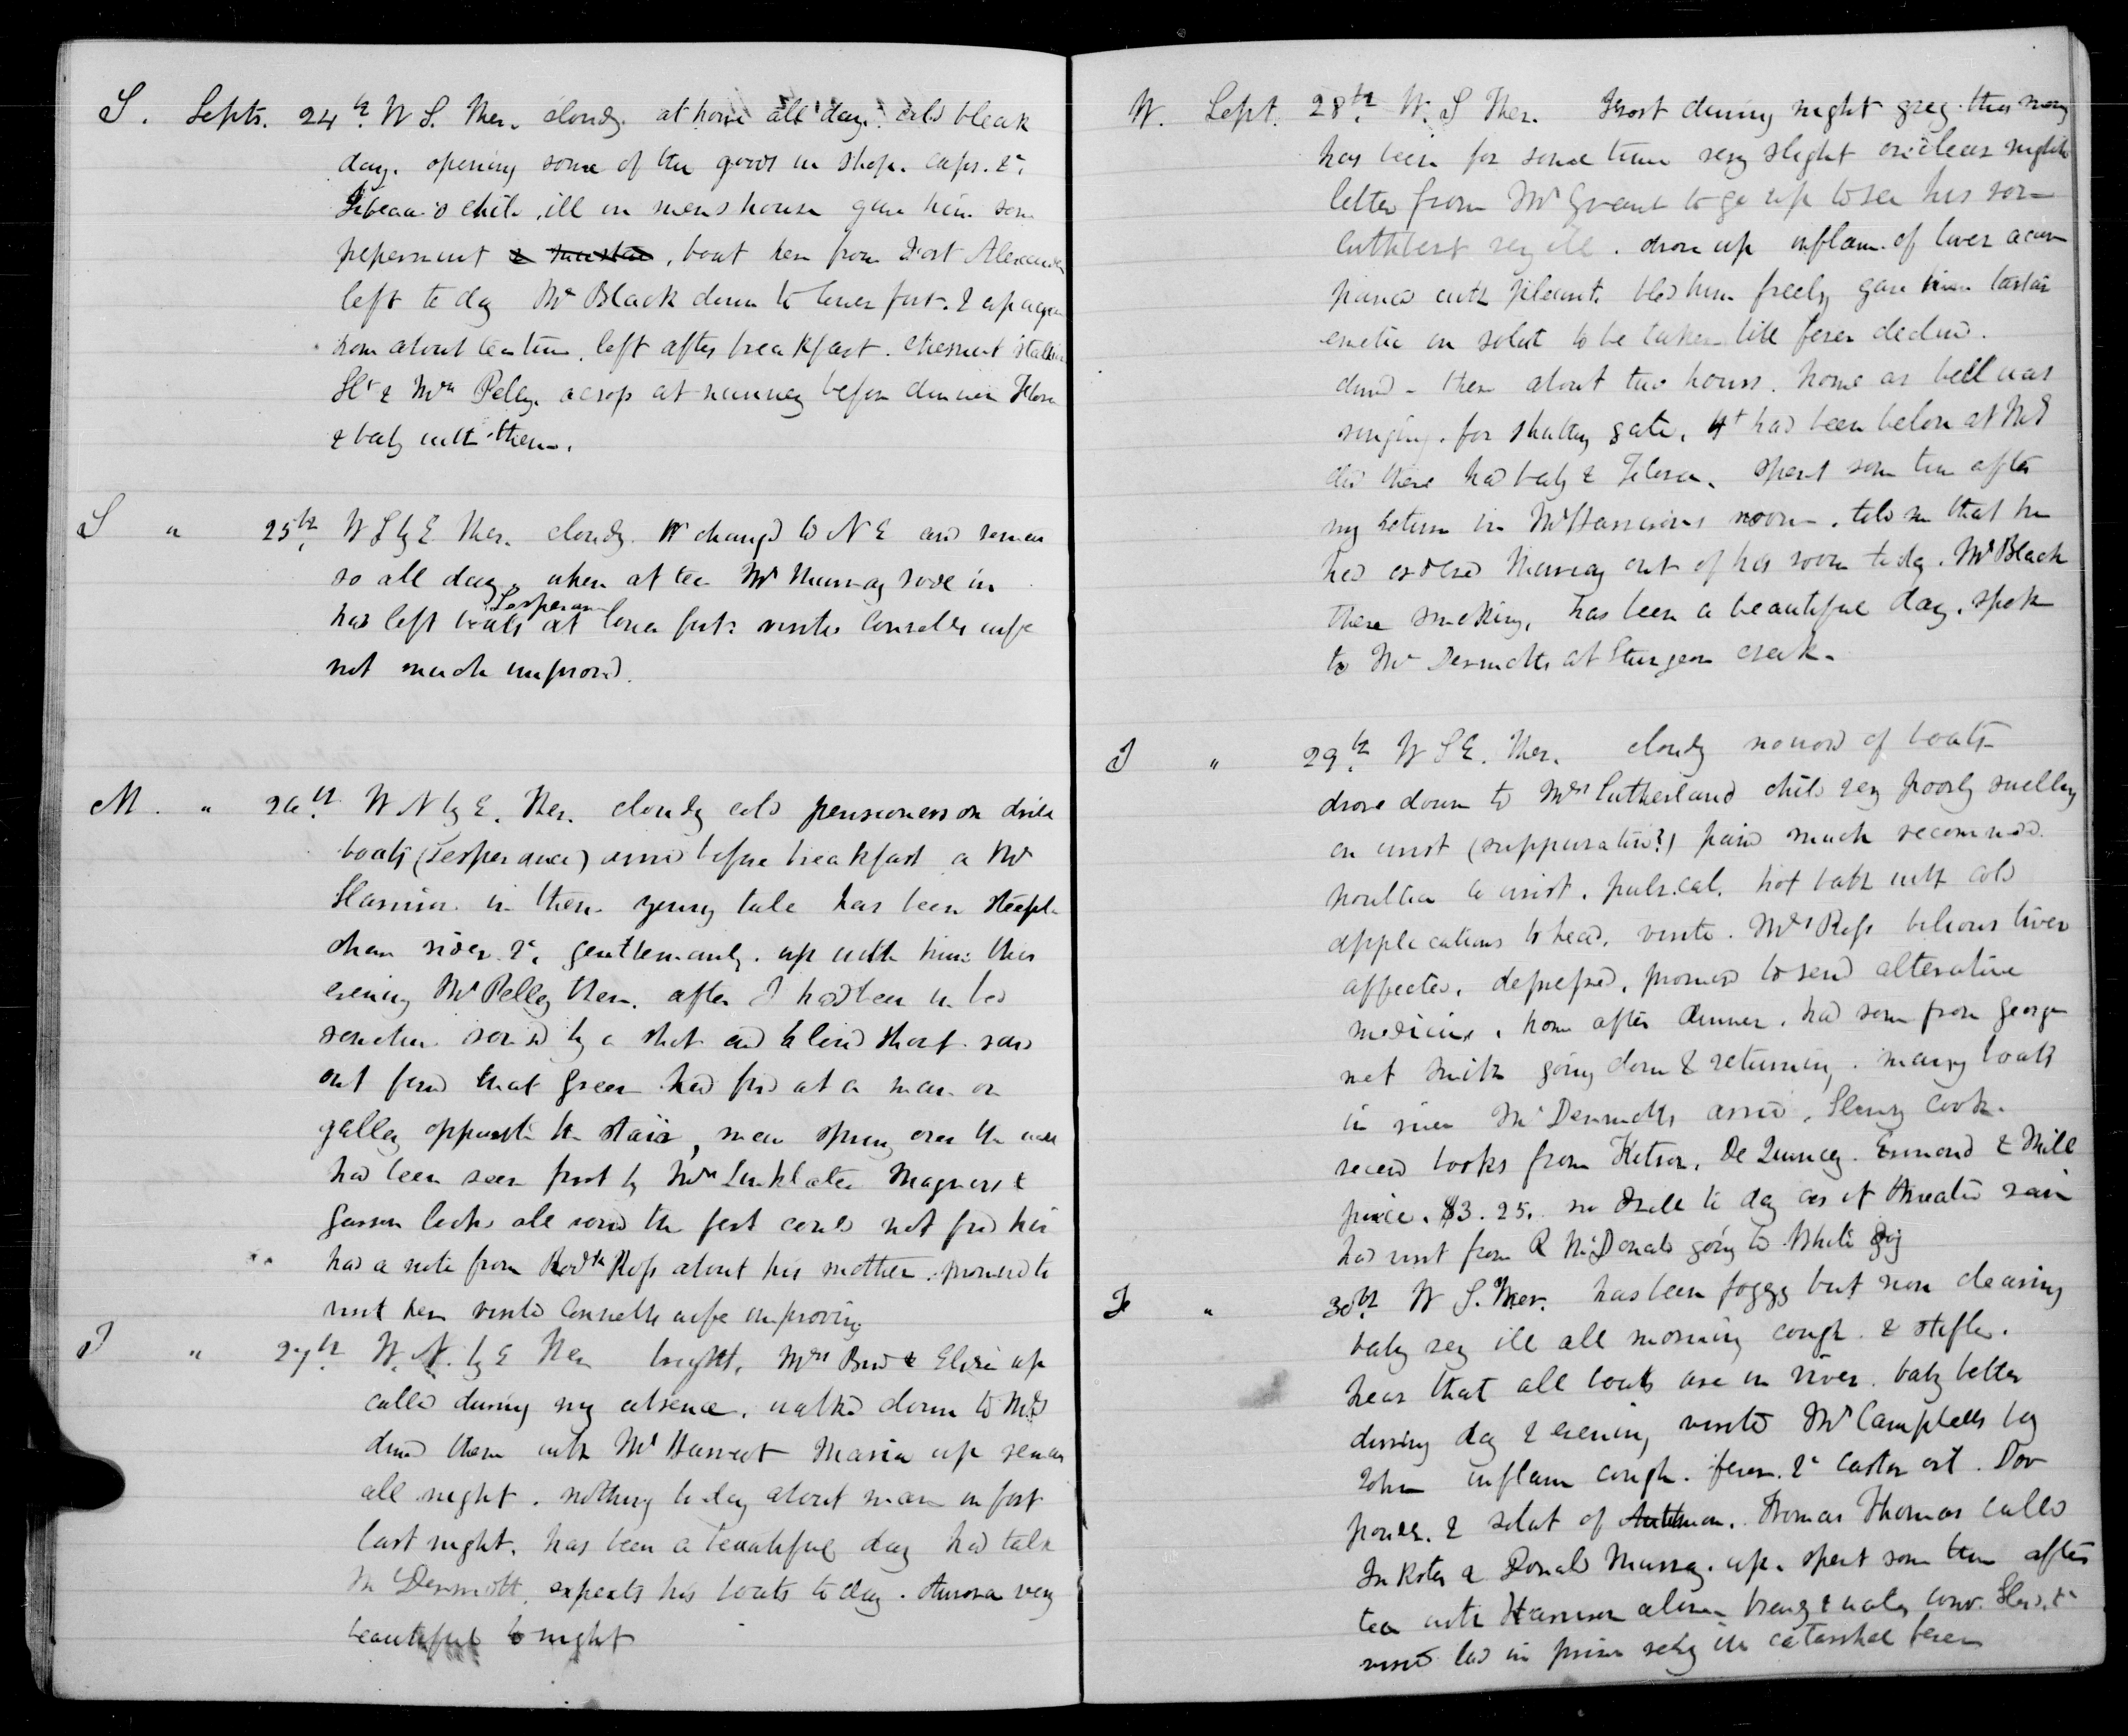 S. Septr. 24th. W S. Ther. cloudy. at home all day. cold bleak
day. opening some of the goods in shop. caps. &c.
child ill in mens house gave him som
peperment &, boat here from Fort Alexander
left to day Mr Black down to lower fort. & up again
home about tea time. left after breakfast. Chesnut stallion
Ht & Mrs Pelly. across at nunnery before dinner Flora
& baby with them.
S " 25th. W S by E Ther. cloudy. Wd changed to N E and remain
so all day, when at tea Mr Murray rode in
Lesperan
has left boats at lower fort. visited Connells wife
not much improvd.
M. " 26th. W N by E. Ther. cloudy cold pensioners on drill
boats (Lesperance) arrivd before breakfast a Mr
Harrison in them. young has been steeple
chase rider &c. gentlemanly. up with him this
evening Mr Pelly there. after I had been in bed
sometime rousd by a shot and shout. ran
out found that Green had fird at a man on
gallery opposite the stair, man sprung over the wall
had been seen first by Mrs Linklater Magnus &
looked all round the fort could not find him
had a note from Rodk Ross about his mother. promised to
visit her visited Connells wife improving
T " 27th. W. N. by E Ther bright. Mrs Bird & Eliza up
called during my absence. walked down to McD
dined there with Mr Maria up remain
all night. nothing to day about man in fort
last night. has been a beautiful day had talk
McDermott. expects his boats to day. Aurora very
beautiful to night
W. Sept. 28th. W. S Ther. Frost during night grey. this morng
has been for some time very slight on clear nights
letter from Mr Grant to go up to see his son
Cuthbert very ill. drove up inflam. of liver accom
panied with pleurit. bled him freely gave him tartar
emetic in solut to be taken till fever declind.
dined there about two hours. home as bell was
ringing. for shutting gate. Ht had been below at McD
did there had baby & Flora. spent som time after
my return in Mr Harrisons room. told me that he
had ordered Murray out of his room to day. Mr Black
there smoking. has been a beautiful day. spok
to McDermotts at Sturgeon creek.
T " 29th. W S E. Ther. cloudy no word of boats
drove down to Mrs Sutherland child very poorly swelling
on wrist (suppurative?) pain much recommend
poultice to wrist. pulv. cal. hot bath with cold
applications to head. visited. Mrs Ross bilious liver
affected. depressed. promised to send alterative
medicine. home after dinner. had som from George
met Smith going down & returning. many boats
in river McDermotts arrivd. Henry Cook.
recevd books from Kitson. De Quincey. & Mill
price. $3.25. no drill to day as it threatend rain
had visit from R McDonald going to White Dog
F " 30th. W S. Ther. has been foggy but now clearing
baby very ill all morning cough. & stifled.
hear that all boats are in river. baby better
during day & evening visited Mr Campbells boy
John inflam cough. fever. &c castor oil. Dov
powdr. & solut of Antimon. Thomas Thomas called
Inkster & Donald Murray. up. spent som time after
tea with Harrison alone brandy & water
visitd lad in prison very ill catarrhal fever